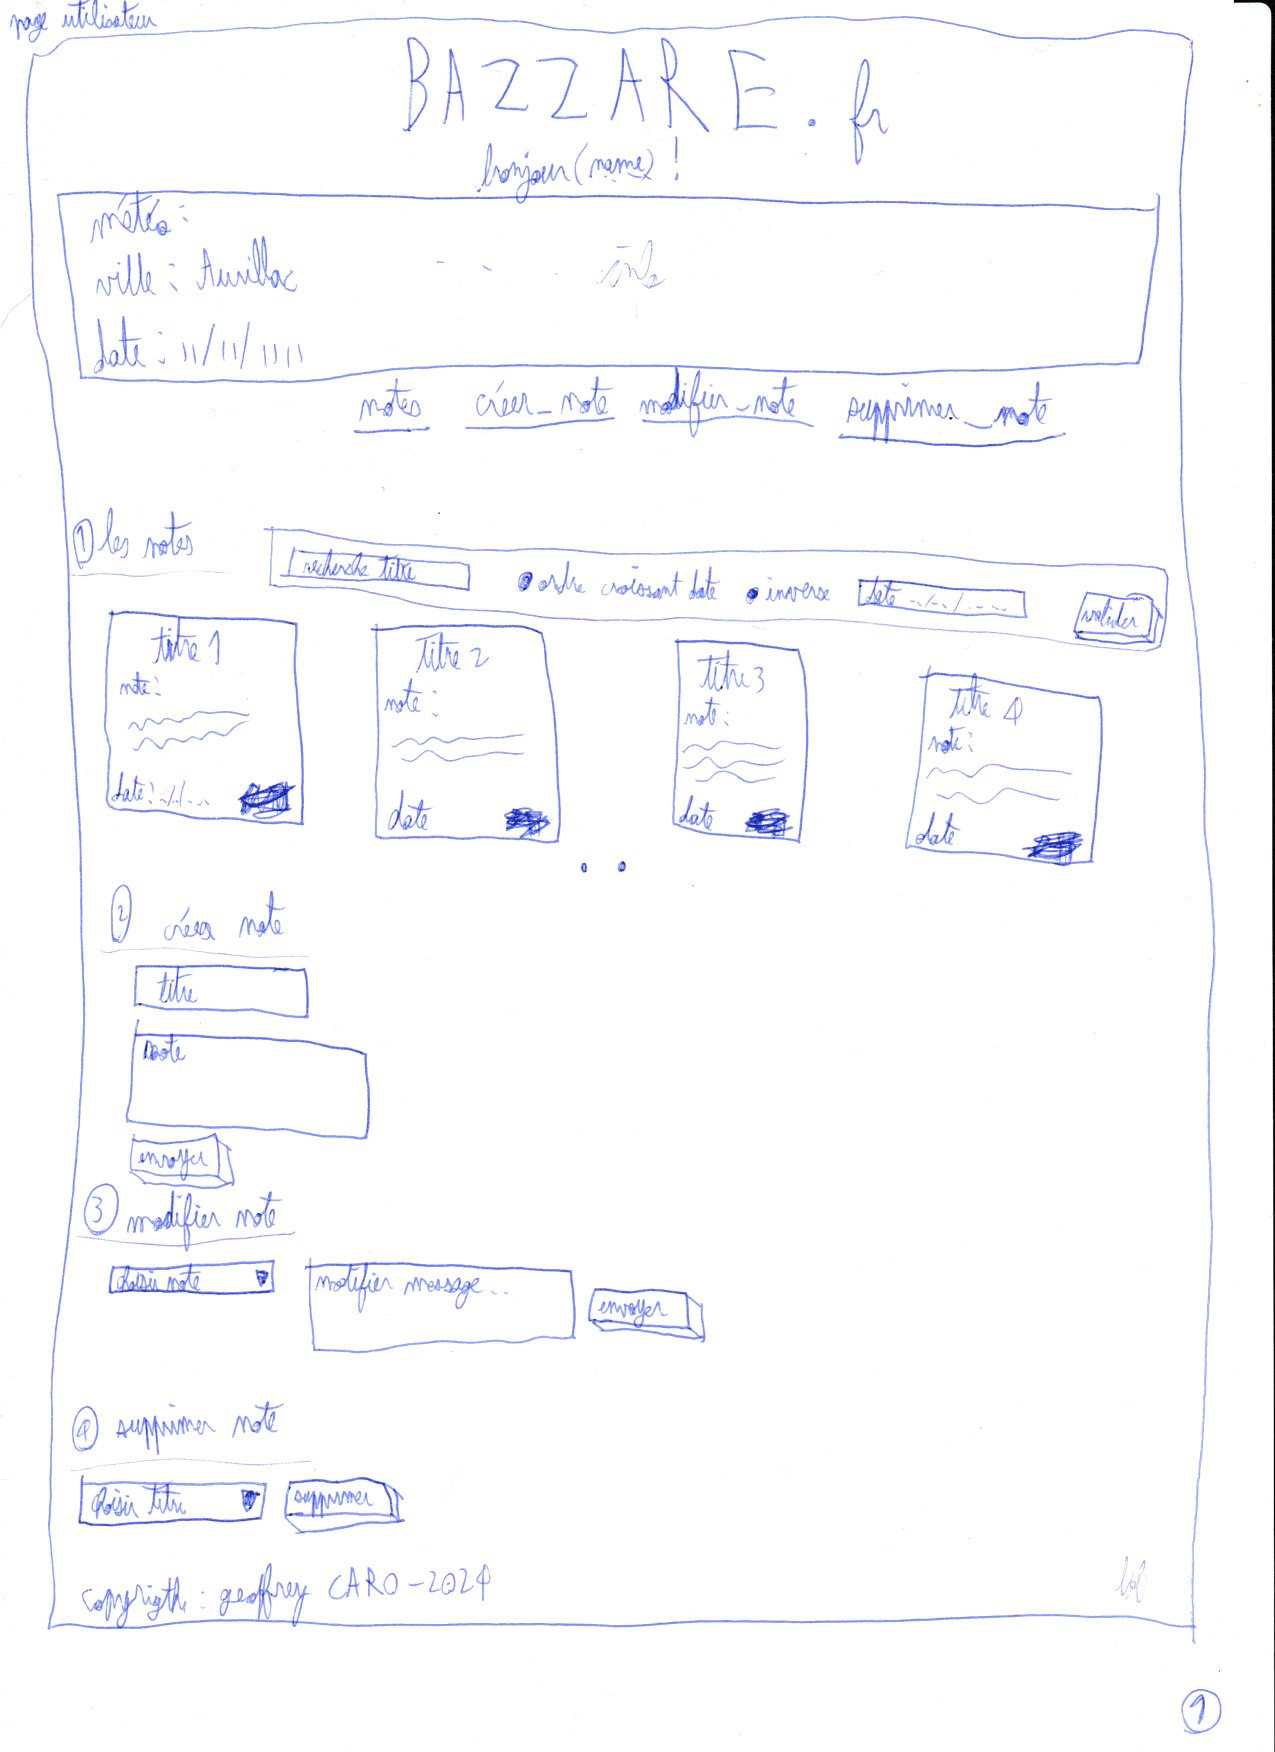 page utilisateur
BAZZARE.fr
bonjour (name) !
météo :
ville : Aurillac
date : 11/11/1111
notes créer_note modifier_note supprimer_note
① les notes
recherche titre ordre croissant date inverse date --/--/---- valider
titre 1 titre 2 titre 3 titre 4
note : note : note : note :
date : --/--/---- date date date
② créer note
titre
note
envoyer
③ modifier note
choisir note modifier message... envoyer
④ supprimer note
choisir titre supprimer
copyrigth : geoffrey CARO - 2024
lol
①